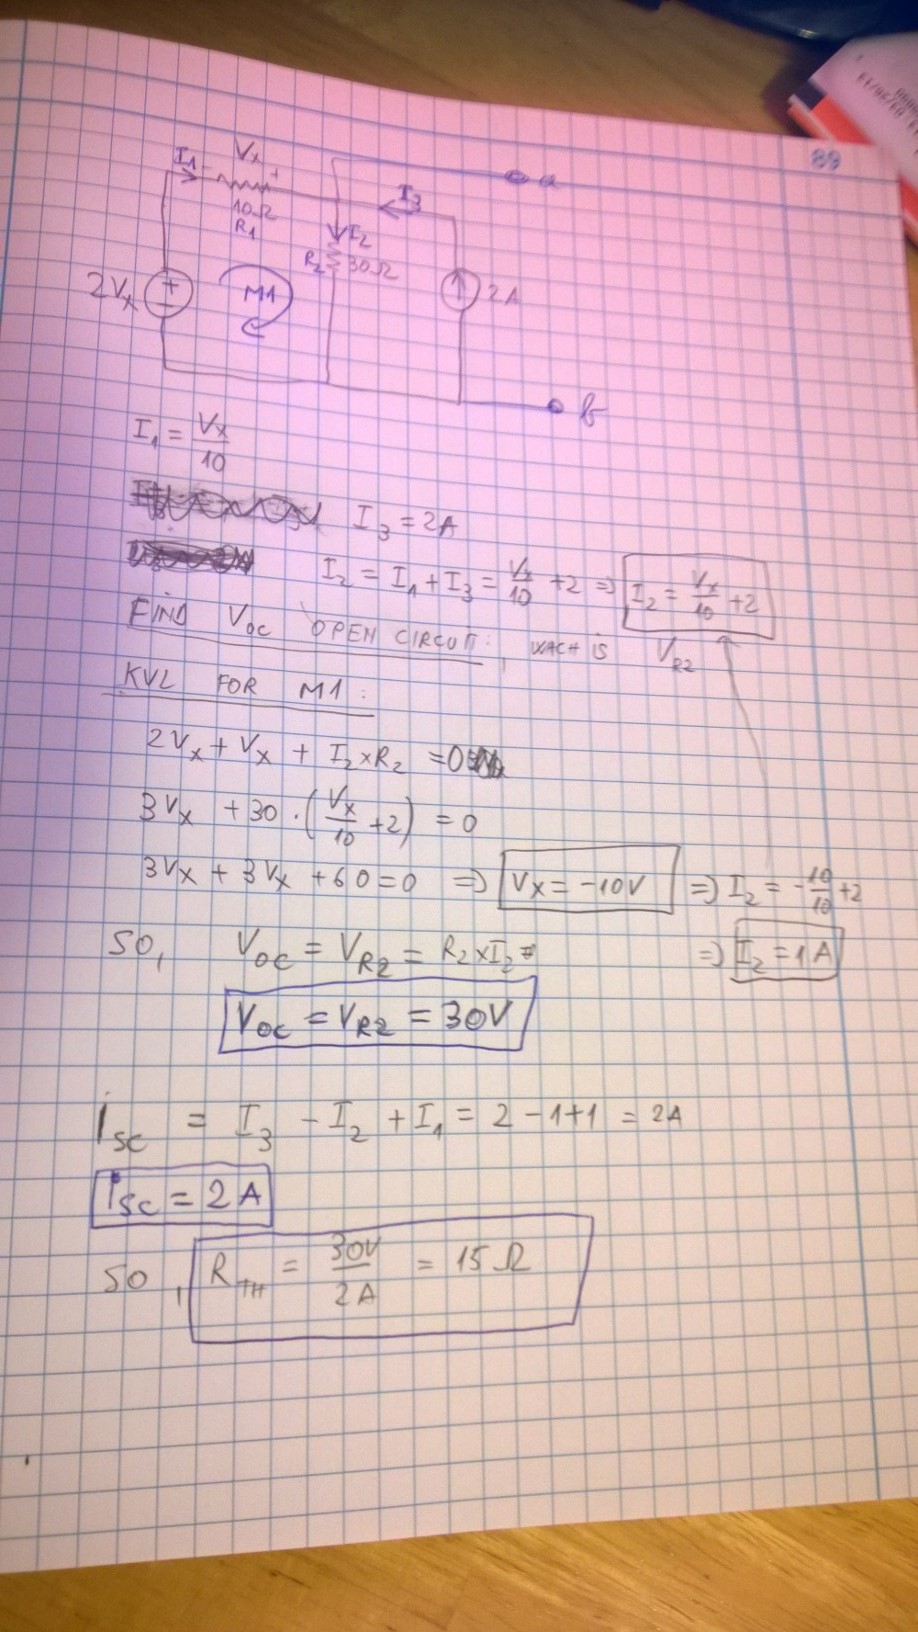 89
I₁ - Vx + I₃ a
10Ω
R₁
I₂
R₂ 30Ω
2Vx + - M1 2A
b
I₁ = Vx/10
I₃ = 2A
I₂ = I₁ + I₃ = Vx/10 + 2 ⇒ I₂ = Vx/10 + 2
FIND Voc OPEN CIRCUIT:, WACH IS V_R2
KVL FOR M1:
2Vx + Vx + I₂×R₂ = 0
3Vx + 30 · (Vx/10 + 2) = 0
3Vx + 3Vx + 60 = 0 ⇒ Vx = -10V ⇒ I₂ = -10/10 + 2
SO, Voc = V_R2 = R₂×I₂ = ⇒ I₂ = 1A
Voc = V_R2 = 30V
i_sc = I₃ - I₂ + I₁ = 2 - 1 + 1 = 2A
i_sc = 2A
SO, R_TH = 30V/2A = 15Ω